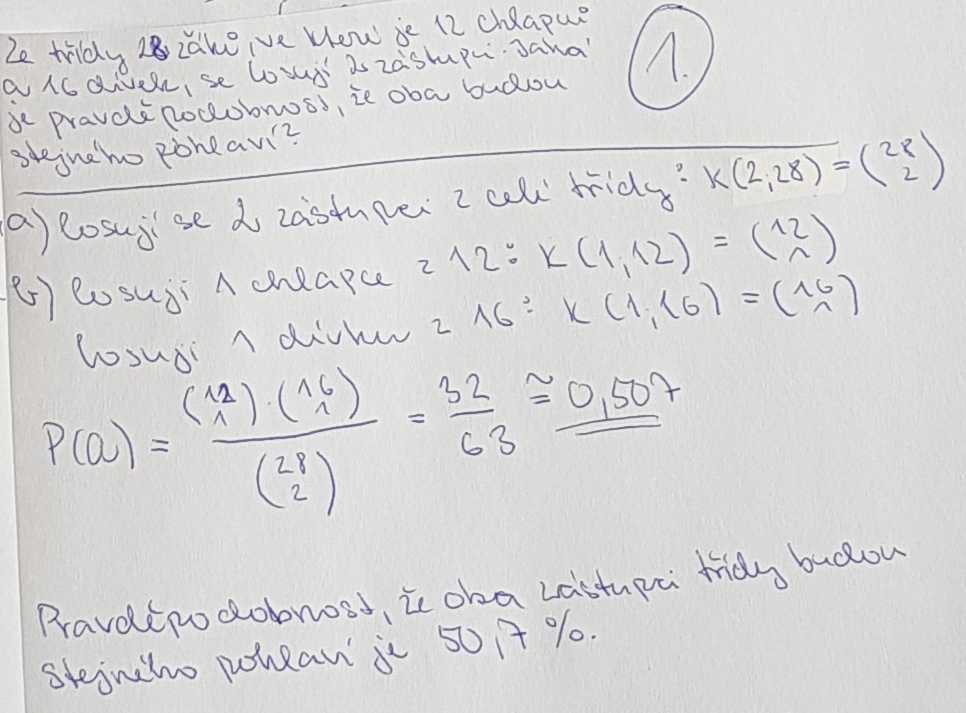 Ze třídy 28 žáků, ve které je 12 chlapců
a 16 dívek, se losují 2 zástupci. Jaká
je pravděpodobnost, že oba budou
stejného pohlaví?
1.
a) losují se 2 zástupci z celé třídy: K(2,28) = (28 2)
b) losuji 1 chlapce z 12: K(1,12) = (12 1)
losuji 1 dívku z 16: K(1,16) = (16 1)
P(a) = (12 1)·(16 1) / (28 2) = 32/63 ≅ 0,507
Pravděpodobnost, že oba zástupci třídy budou
stejného pohlaví je 50,7 %.